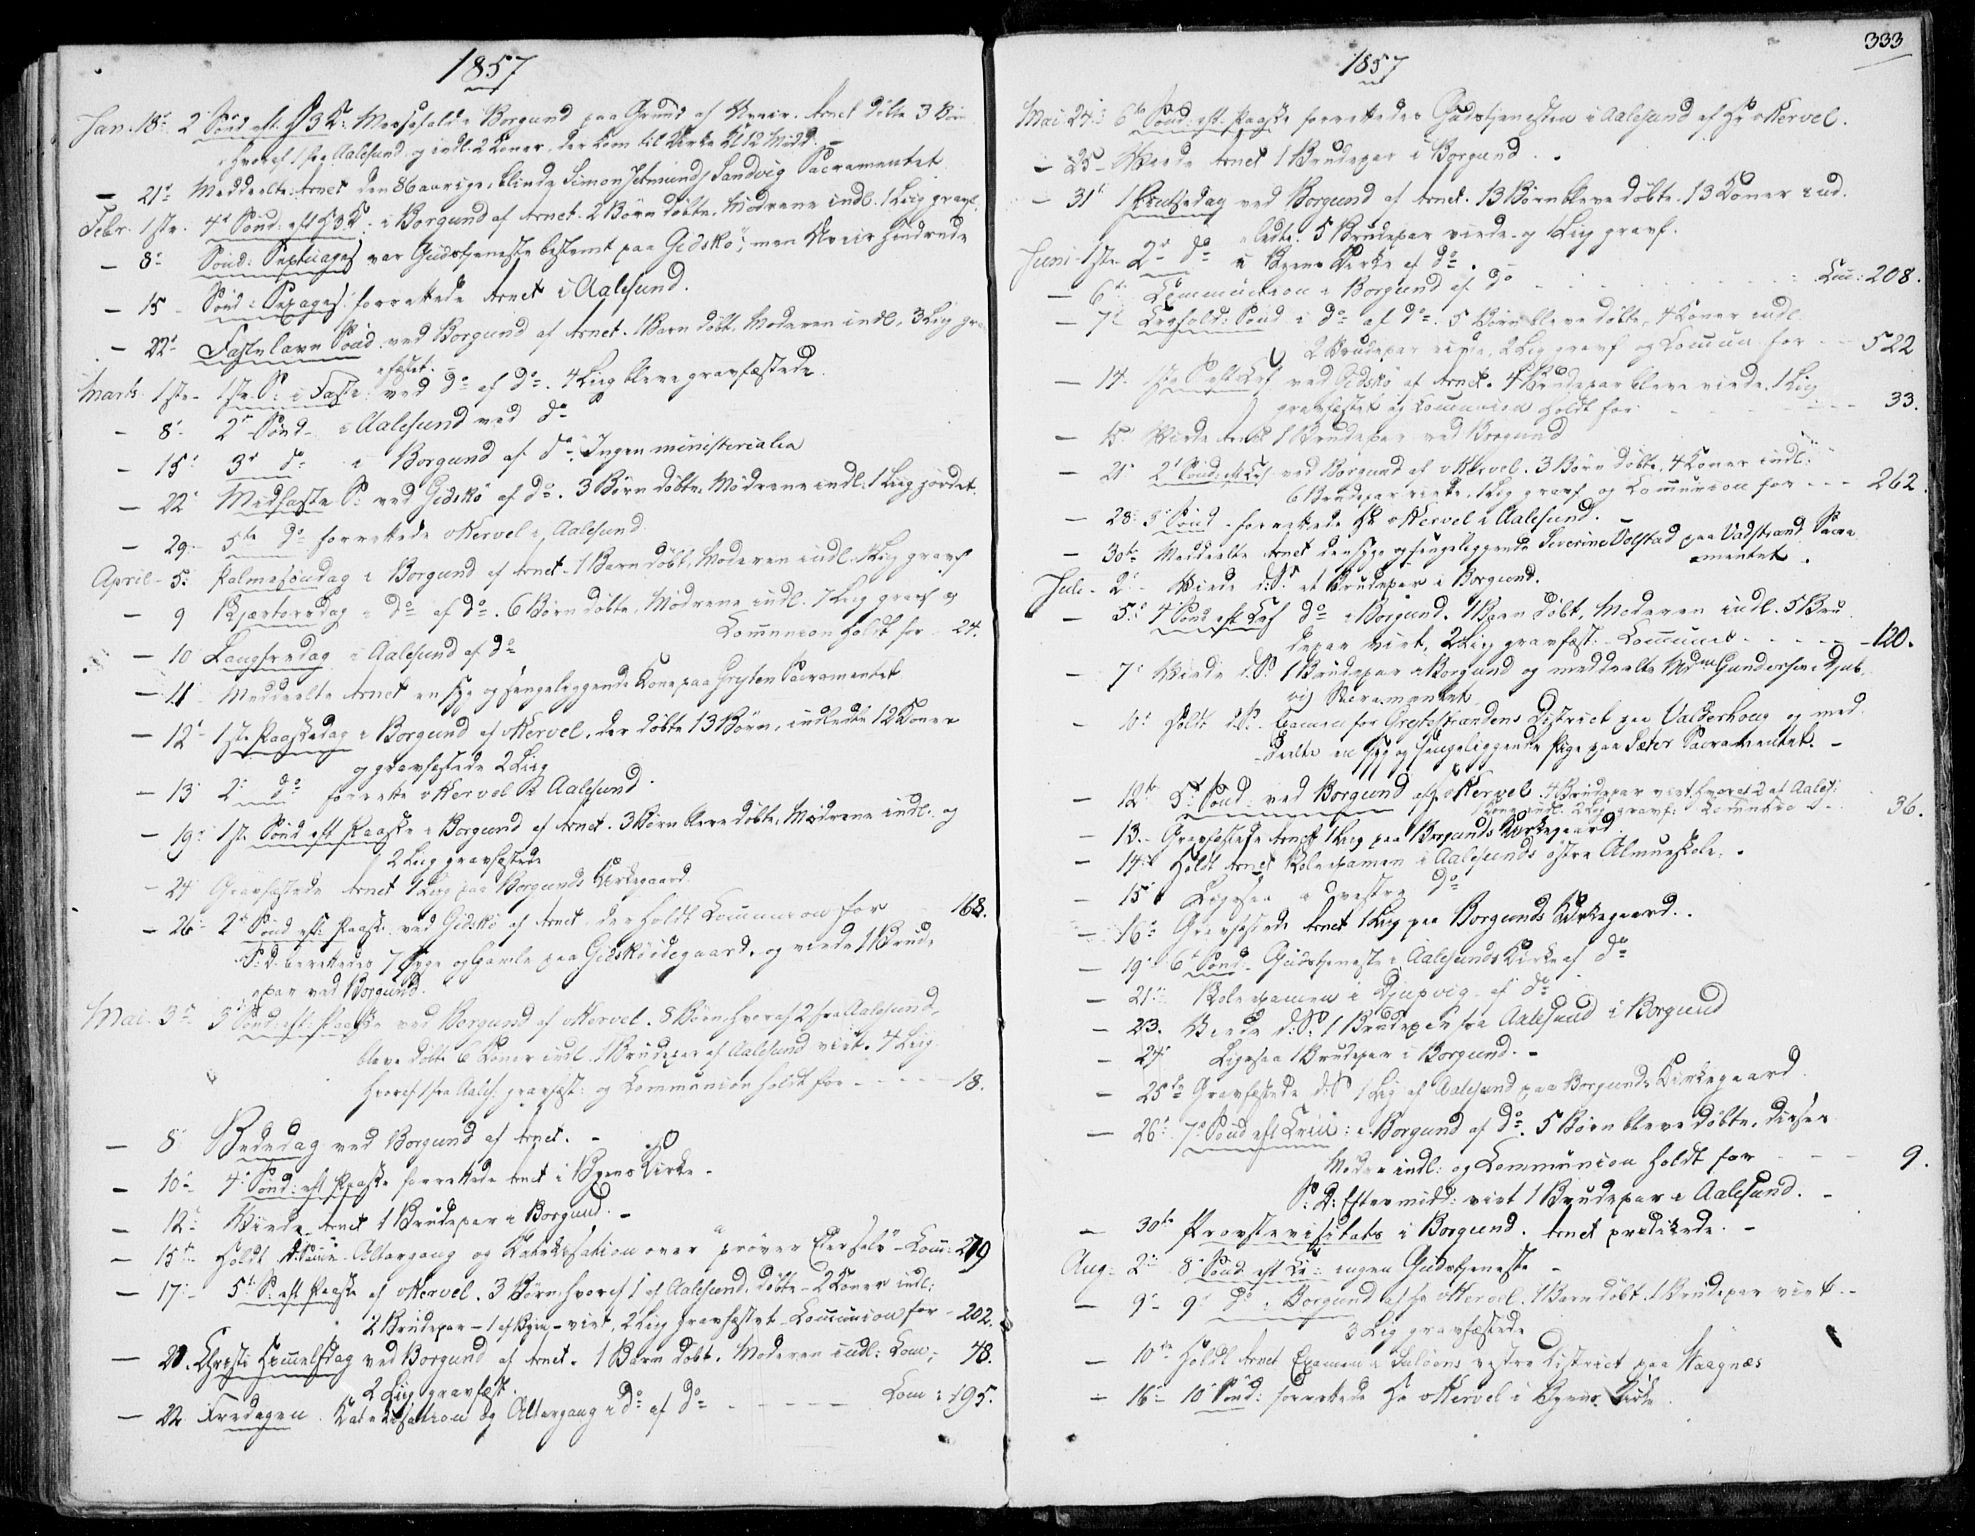 1857
Jan. 18d 2d Sönd. eft. H3K: Messefald i Borgund paa Grund af Uveir. Arnet døbte 3 Börn
hvoraf 1 fra Aalesund, og indl. 2 Koner, der kom til Kirke Kl 12 Midd. –
– 21d Meddeelte Arnet den 86aarige, blinde Simon Sandvig Sacramentet.
Febr. 1ste. 4d Sönd. eft H3K. i Borgund af Arnet. 2 Börn døbte, Mødrene indl. 1 Liig gravf.
– 8d Sönd: Septuages var Gudstjeneste bestemt paa Gidskö, men Uveir hindrede
– 15 – Sönd: Sexages: forrettede Arnet i Aalesund.
– 22d Fastelavn Sönd. ved Borgund af Arnet. 1 Barn døbt, Moderen indl., 3 Liig gra-
fæstet. –
Marts 1ste – 1ste S: i Faste: ved do af do. 4 Liig bleve gravfæstede.
– 8d 2d Sönd – i Aalesund ved do
– 15d 3d do i Borgund af do. Ingen ministerialia
– 22d Midfaste S: ved Gidskö af do. 3 Börn døbte, Mødrene indl. 1 Liig jordet.
– 29 – 5te do forrettede v Kervel i Aalesund.
April – 5d Palmesöndag i Borgund af Arnet. 1 Barn døbt, Moderen indl. Liig gravf
– 9 Skjærtorsdag i do af do. 6 Börn døbte, Mødrene indl. 7 Liig gravf og
Communion holdt for – 24.
– 10 Langfredag i Aalesund af do
– 11 Meddeelte Arnet en syg og sengeliggende Kone paa Gryten Sacramentet
– 12d 1ste Paaskedag i Borgund af v Kervel, der døbte 13 Börn, indledte 12 Koner
og gravfæstede 2 Liig
– 13 2d do forrette v Kervel i Aalesund.
– 19d 1st. Sönd eft Paaske i Borgund af Arnet. 3 Börn bleve døbte, Mødrene indl. og
2 Liig gravfæstede
– 24 Gravfæstede Arnet 1 Liig paa Borgunds Kirkegaard.
– 26d 2d Sönd eft Paaske ved Gidskö af Arnet, der holdt Communion for 168.
S: D. berettedes 7 Syge og Gamle paa Gidsköödegaard, og viede 1 Brude-
par ved Borgund.
Mai 3d 3d Sönd: eft: Paaske ved Borgund af v Kervel. 8 Börn hvoraf 2 fra Aalesund,
bleve døbte 6 Koner indl. 1 Brudepar af Aalesund viet. 4 Liig
hvoraf 1 fra Aales: gravfæst: og Communion holdt for – – – – 18.
– 8 Bededag ved Borgund af Arnet. –
– 10d 4d Sönd: eft Paaske forrettede Arnet i Byens Kirke.
– 12d Viede Arnet 1 Brudepar i Borgund. –
– 15d Holdt Altergang og Katekisation over "prøver Eder selv" – Com: 219
– 17d 5t S: eft Paaske af v Kervel. 3 Börn, hvoraf 1 af Aalesund, døbte – 2 Koner indl:
2 Brudepar – 1 af Byen – viet, 2 Liig gravfæstet. Communion for – 202.
– 21. Christi Himmelfdag ved Borgund af Arnet. 1 Barn døbt. Moderen indl: Com: 48.
2 Liig gravfæst.
– 22 Fredagen Katekisation og Altergang i do af do – – – – – Com: 195.
333
1857
Mai 24d 6te Sönd: eft. Paaske forrettedes Gudstjenesten i Aalesund af Hr v Kervel.
– 25 – Viede Arnet 1 Brudepar i Borgund.
– 31d 1 Pintsedag ved Borgund af Arnet. 13 Börn bleve døbte. 13 Koner ind-
ledte. 5 Brudepar viede og 1 Liig gravf.
Juni – 1ste 2d do i Byens Kirke af do.
– 6d Communion i Borgund af do – – – – – – – – Com: 208.
– 7d Trefold: Sönd i do af do. 5 Börn bleve døbte, 4 Koner indl.
2 Brudepar viede, 2 Liig gravf og Commun. for – – 522
– 14. 1ste S eft Tref ved Gidskö af Arnet. 4 Brudepar bleve viede, 1 Liig
gravfæstet og Communion holdt for – – – – – – 33.
– 15d Viede Arnet 1 Brudepar ved Borgund
– 21d 2d Sönd: eft Tref ved Borgund af v Kervel. 3 Börn døbte, 4 Koner indl:
6 Brudepar viede, 1 Liig gravf. og Communion for – – – 262.
– 28d 3d Sönd – forrettede Hr v Kervel i Aalesund.
– 30te Meddeelte Arnet den syge og sengeliggende Severine Volstad paa Vadstrand Sacra-
mentet.
Juli – 2d – Viede d: S: et Brudepar i Borgund.
– 5d 4 Sönd eft Tref do i Borgund. 1 Barn døbt, Moderen indl. 5 Bru-
depar viet, 2 Liig gravfæst. – Commun: – – – – 120.
– 7d Viede d. S: 1 Brudepar i Borgund og meddeelte Mdm Gundersen i Djub-
vig Sacramentet.
– 10d Holdt d. S: Examen for Grytestrandens District paa Valderhoug og med-
deelte en syg og sengeliggende Pige paa Sæter Sacramentet. –
– 12te 5d Sönd: ved Borgund af v Kervel. 4 Brudepar viet, hvoraf 2 af Aales:
indl. 2 Liig gravf: Communion – 36.
– 13. – Gravfæstede Arnet 1 Liig paa Borgunds Kirkegaard
– 14d Holdt Arnet Skoleexamen i Aalesunds östre Almueskole.
– 15d Ligesaa i vestre do
– 16d Gravfæstede Arnet 1 Liig paa Borgunds Kirkegaard.
– 19d 6d Sönd. Gudstjeneste i Aalesunds Kirke af do
– 21d Skoleexamen i Djupvig af do
– 23. Viede d: S: 1 Brudepar fra Aalesund i Borgund
– 24d Ligesaa 1 Brudepar i Borgund. –
– 25de Gravfæstede d: S 1 Liig af Aalesund paa Borgunds Kirkegaard.
– 26d 7d Sönd eft Trin: i Borgund af do. 5 Börn bleve døbte, disses
Mødre indl: og Communion holdt for – – – 9.
S: D: Eftermidd: viet 1 Brudepar i Aalesund. –
– 30te Provstevisitats i Borgund. Arnet prædikede. –
Aug: 2d 8d Sönd: eft Tr: ingen Gudstjeneste –
– 9d 9d do i Borgund af Hr v Kervel. 1 Barn døbt. 1 Brudepar viet. –
3 Liig gravfæstede
– 10de Holdt Arnet Examen i Suløens vestre District paa Vaagnæs
– 16d 10 Sönd: forrettede Hr v Kervel i Byens Kirke.